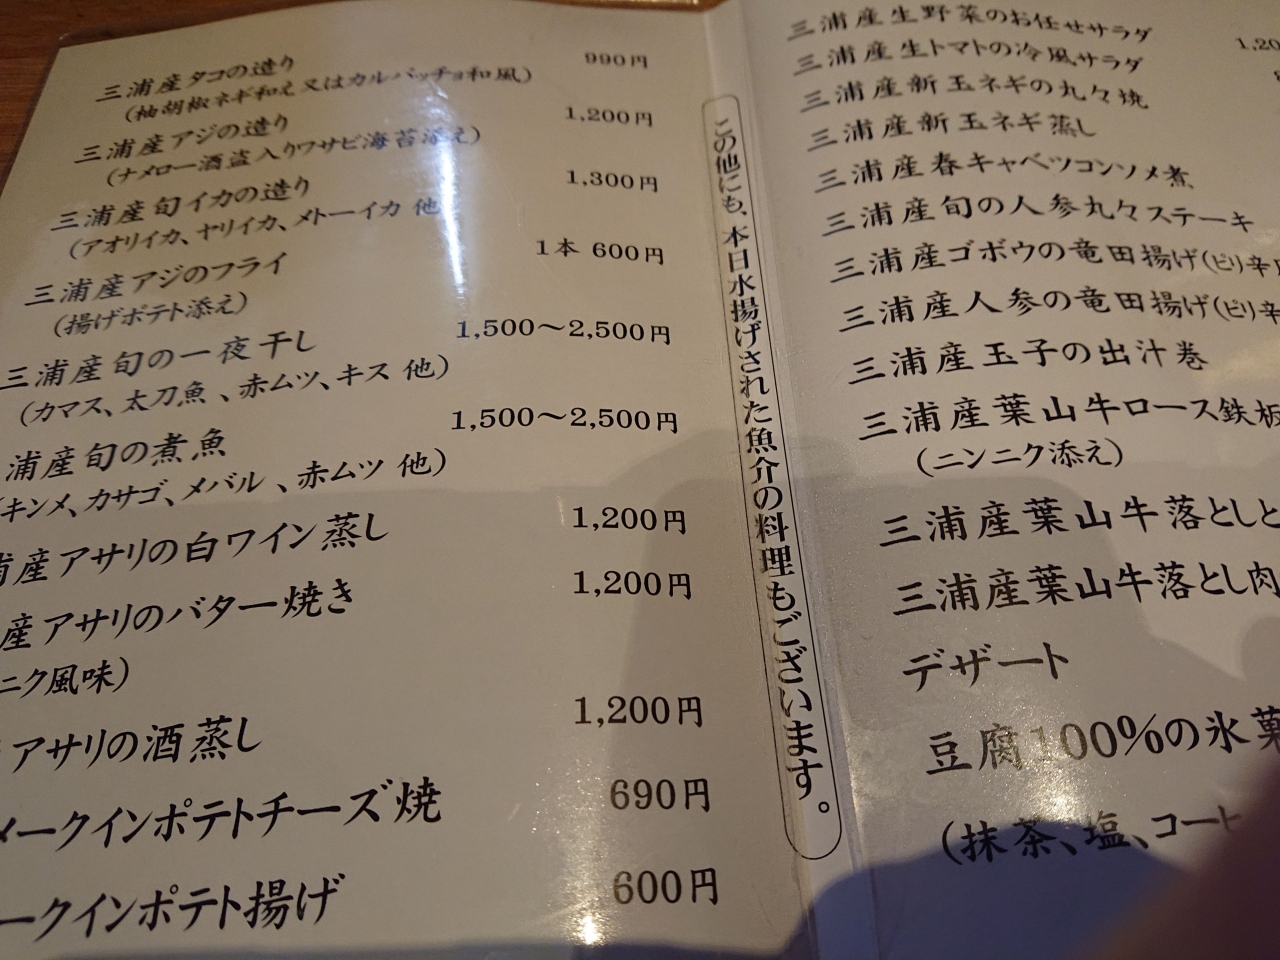 三浦産タコの造り 990円
(柚胡椒ネギ和え又はカルパッチョ和風)
三浦産アジの造り 1,200円
(ナメロー酒盗入りワサビ海苔添え)
三浦産旬イカの造り 1,300円
(アオリイカ、ヤリイカ、メトーイカ 他
三浦産アジのフライ 1本 600円
(揚げポテト添え)
三浦産旬の一夜干し 1,500～2,500円
(カマス、太刀魚、赤ムツ、キス 他)
浦産旬の煮魚 1,500～2,500円
キンメ、カサゴ、メバル、赤ムツ 他)
浦産アサリの白ワイン蒸し 1,200円
産アサリのバター焼き 1,200円
ニク風味)
アサリの酒蒸し 1,200円
メークインポテトチーズ焼 690円
ークインポテト揚げ 600円
この他にも、本日水揚げされた魚介の料理もございます。
三浦産生野菜のお任せサラダ 1,20
三浦産生トマトの冷風サラダ
三浦産新玉ネギの丸々焼
三浦産新玉ネギ蒸し
三浦産春キャベツコンソメ煮
三浦産旬の人参丸々ステーキ
三浦産ゴボウの竜田揚げ(ピリ辛
三浦産人参の竜田揚げ(ピリ辛
三浦産玉子の出汁巻
三浦産葉山牛ロース鉄板
(ニンニク添え)
三浦産葉山牛落としと
三浦産葉山牛落とし肉
デザート
豆腐100%の氷菓
(抹茶、塩、コーヒ